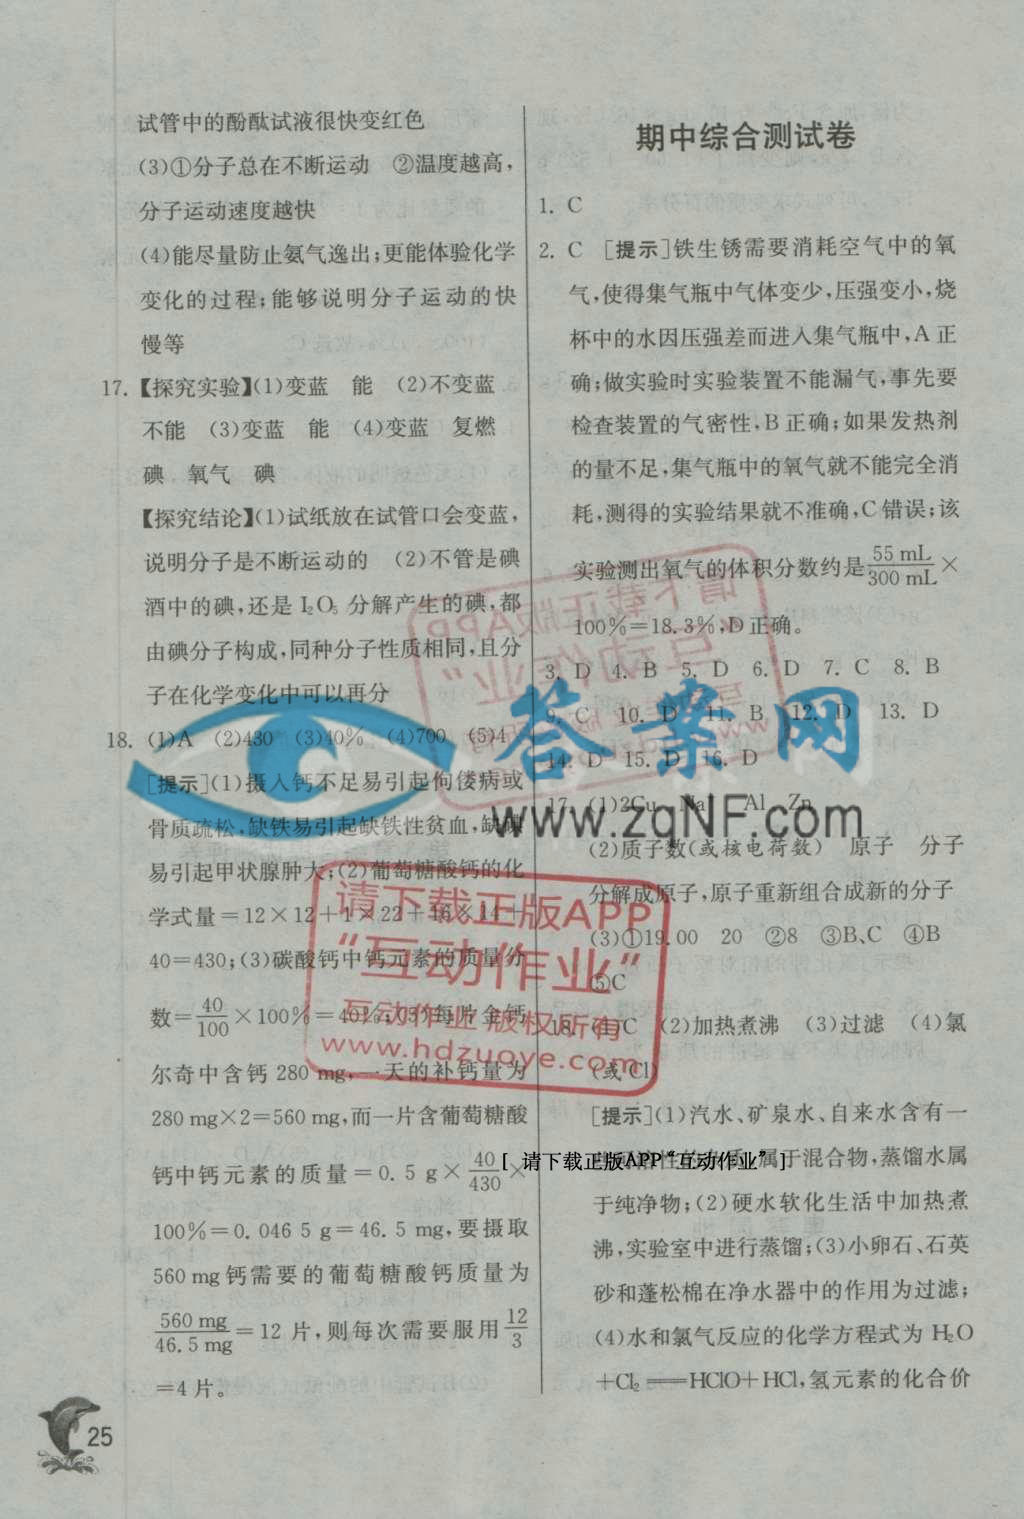 试管中的酚酞试液很快变红色
(3)①分子总在不断运动 ②温度越高,
分子运动速度越快
(4)能尽量防止氨气逸出;更能体验化学
变化的过程;能够说明分子运动的快
慢等
17.【探究实验】(1)变蓝 能 (2)不变蓝
不能 (3)变蓝 能 (4)变蓝 复燃
碘 氧气 碘
【探究结论】(1)试纸放在试管口会变蓝,
说明分子是不断运动的 (2)不管是碘
酒中的碘,还是I₂O₅分解产生的碘,都
由碘分子构成,同种分子性质相同,且分
子在化学变化中可以再分
18. (1)A (2)430 (3)40% (4)700 (5)4
[提示](1)摄入钙不足易引起佝偻病或
骨质疏松,缺铁易引起缺铁性贫血,缺碘
易引起甲状腺肿大;(2)葡萄糖酸钙的化
学式量=12×12+1×22+16×14+
40=430;(3)碳酸钙中钙元素的质量分
数=40/100×100%=40%;(5)每片金钙
尔奇中含钙280 mg,一天的补钙量为
280 mg×2=560 mg,而一片含葡萄糖酸
钙中钙元素的质量=0.5 g×40/430×
100%=0.046 5 g=46.5 mg,要摄取
560 mg钙需要的葡萄糖酸钙质量为
560 mg/46.5 mg=12片,则每次需要服用12/3
=4片。
25
期中综合测试卷
1. C
2. C [提示]铁生锈需要消耗空气中的氧
气,使得集气瓶中气体变少,压强变小,烧
杯中的水因压强差而进入集气瓶中,A正
确;做实验时实验装置不能漏气,事先要
检查装置的气密性,B正确;如果发热剂
的量不足,集气瓶中的氧气就不能完全消
耗,测得的实验结果就不准确,C错误;该
实验测出氧气的体积分数约是55 mL/300 mL×
100%=18.3%,D正确。
3. D 4. B 5. D 6. D 7. C 8. B
9. C 10. D 11. B 12. D 13. D
14. D 15. D 16. D
17. (1)2Cu Na Al Zn
(2)质子数(或核电荷数) 原子 分子
分解成原子,原子重新组合成新的分子
(3)①19.00 20 ②8 ③B、C ④B
⑤C
18. (1)C (2)加热煮沸 (3)过滤 (4)氯
(或Cl)
[提示](1)汽水、矿泉水、自来水含有一
属于混合物,蒸馏水属
于纯净物;(2)硬水软化生活中加热煮
沸,实验室中进行蒸馏;(3)小卵石、石英
砂和蓬松棉在净水器中的作用为过滤;
(4)水和氯气反应的化学方程式为H₂O
+Cl₂══HClO+HCl,氢元素的化合价
答案网
www.zqNF.com
请下载正版APP
“互动作业”
请下载正版APP
“互动作业”
互动作业 版权所有
www.hdzuoye.com
[ 请下载正版APP“互动作业” ]